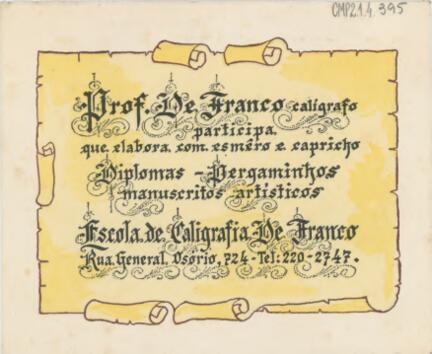 CMP2.1.4.395
Prof. De Franco calígrafo
participa
que elabora com esmêro e capricho
Diplomas - Pergaminhos
manuscritos artísticos
Escola de Caligrafia De Franco
Rua General Osório, 724 - Tel: 220-2747.